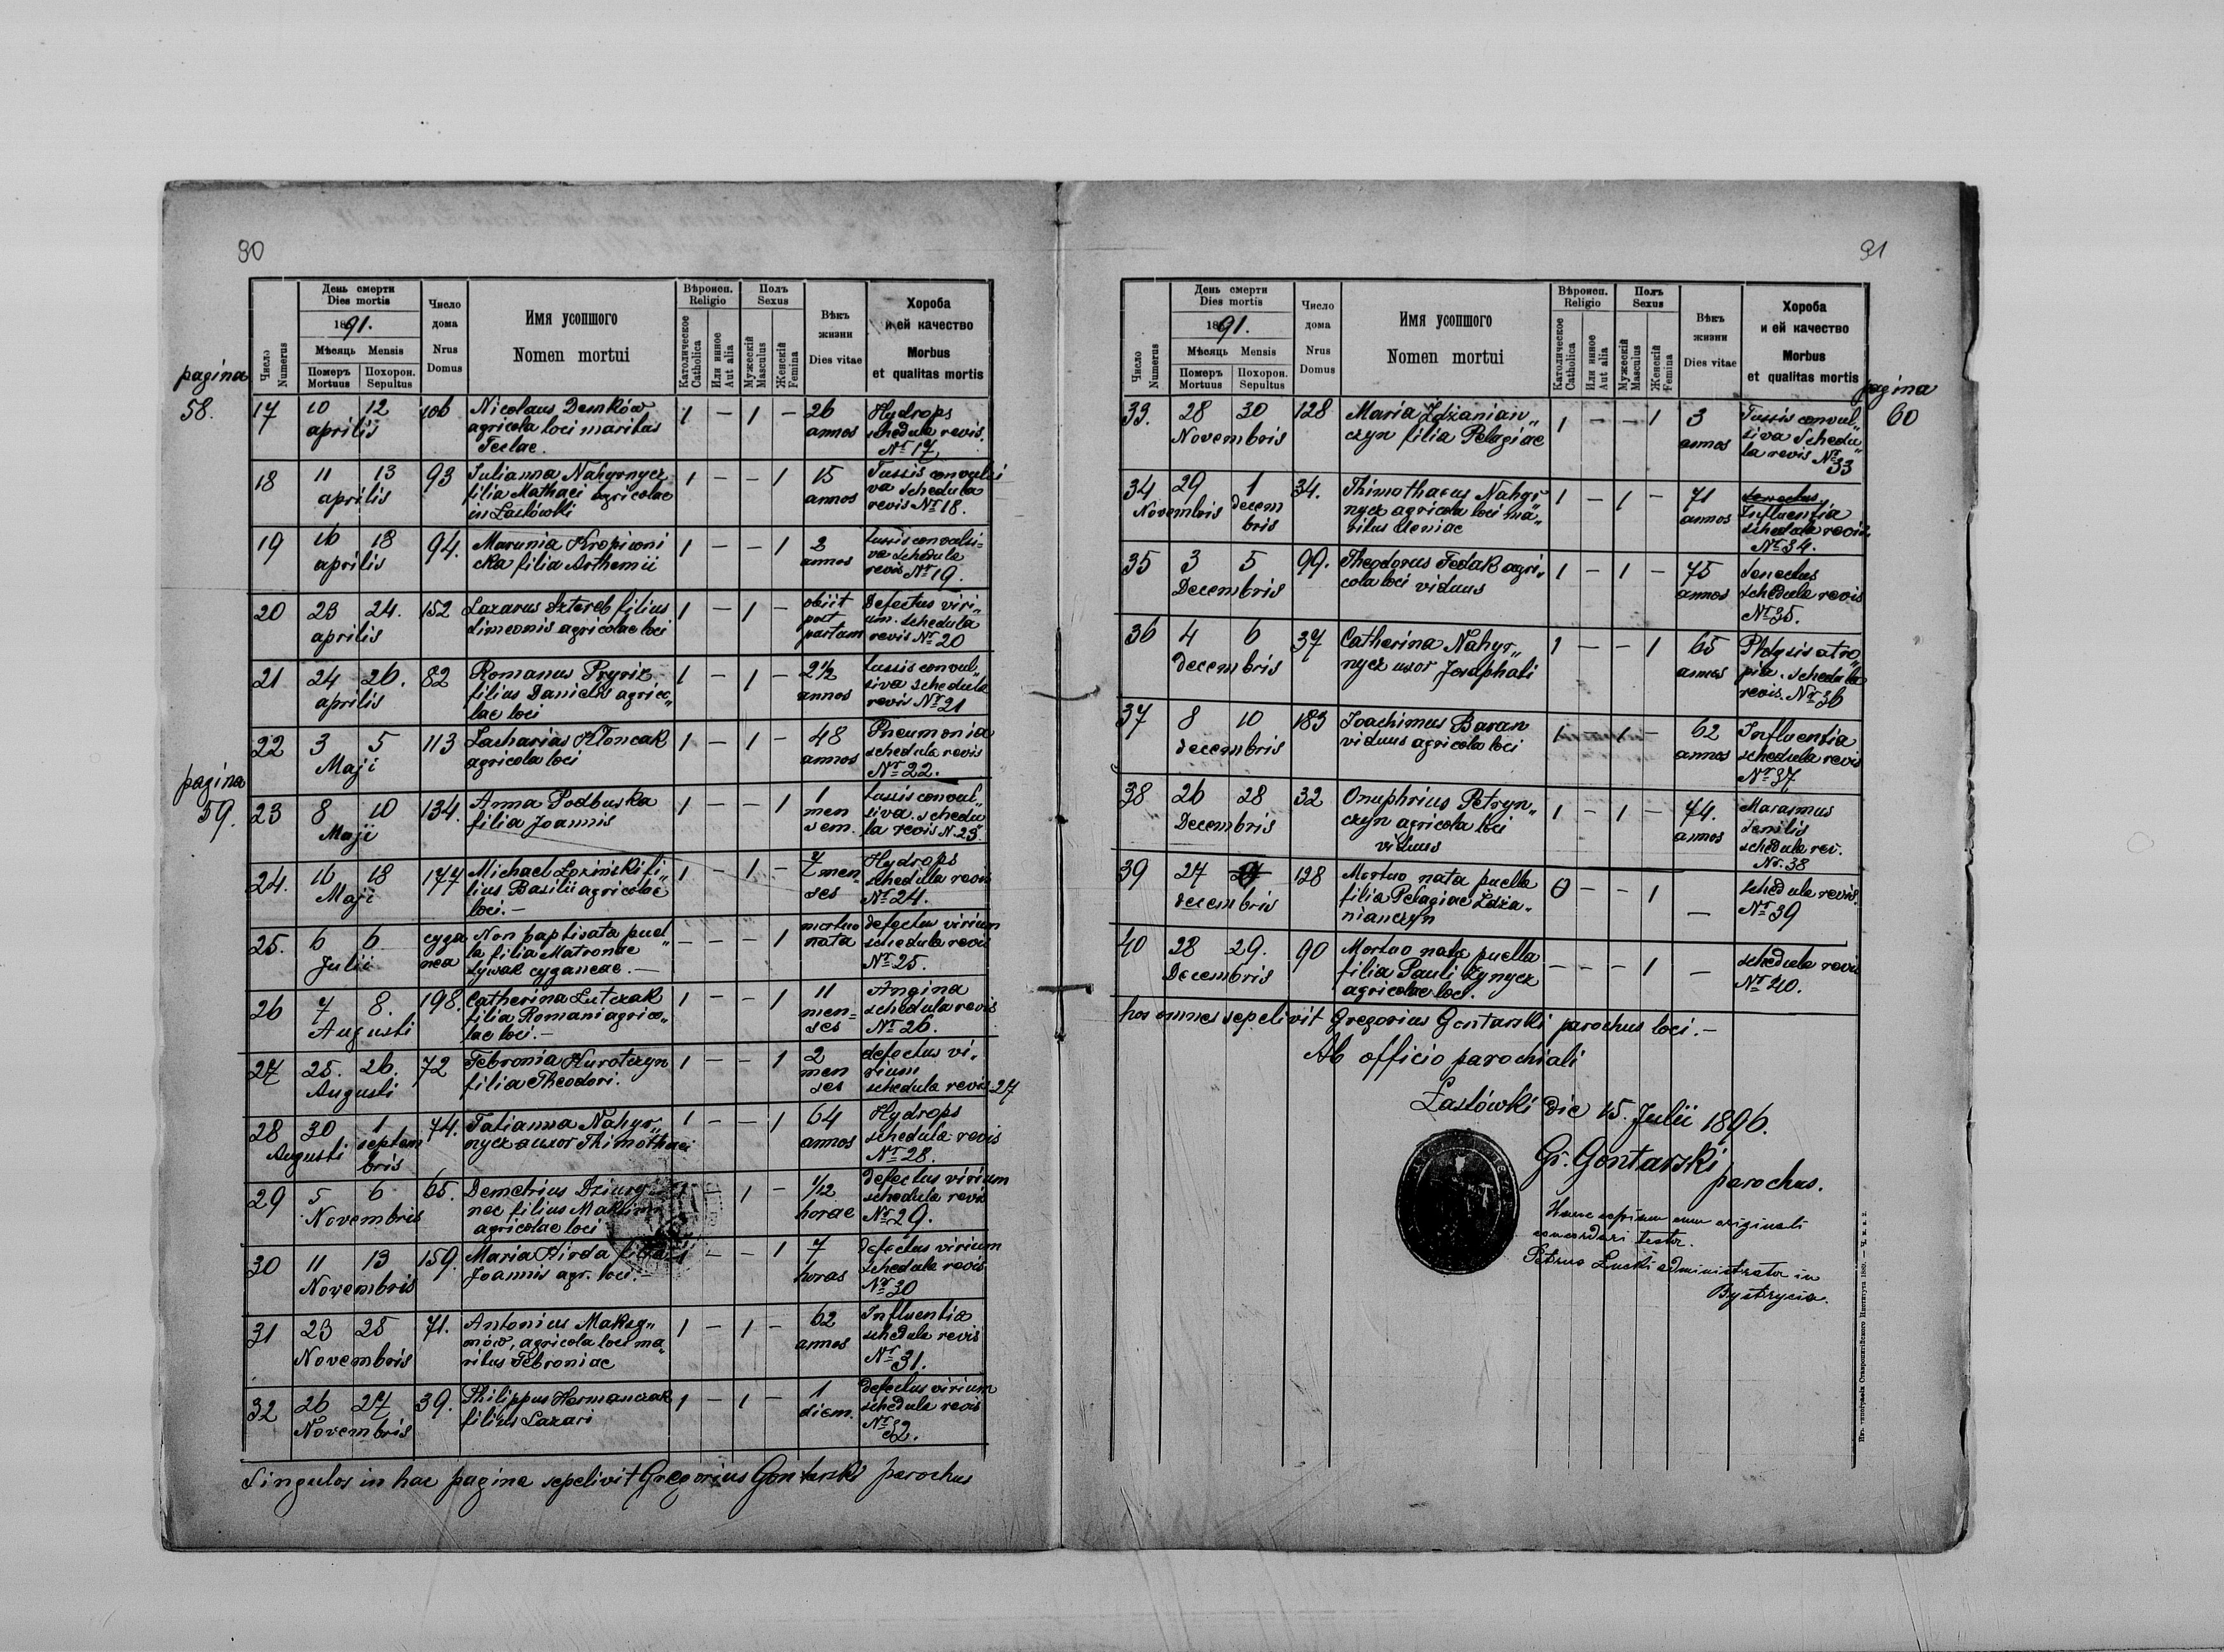 90
День смерти
Dies mortis
1891.
Мѣсяць Mensis
Померъ Mortuus
Похорон. Sepultus
Число Numerus
Число дома
Nrus Domus
Имя усопшого
Nomen mortui
Вѣроисп.
Religio
Католическое Catholica
Или инное Aut alia
Полъ
Sexus
Мужескій Masculus
Женскій Femina
Вѣкъ жизни
Dies vitae
Хороба
и ей качество
Morbus
et qualitas mortis
pagina
58.
17 10 12 106 Nicolaus Demków 1 – 1 – 26 Hydrops
aprilis agricola loci maritus annos schedula revis.
Teclae. Nr 17
18 11 13 93 Julianna Nahyrnycz 1 – – 1 15 Tussis convulsi
aprilis filia Mathaei agricolae annos va schedula
in Lastówki revis Nr 18.
19 16 18 94. Marunia Kropiwni 1 – – 1 2 tussis convulsi=
aprilis cka filia Arthemii annos va schedula
revis Nr 19.
20 23 24. 152 Lazarus Sztereb filius 1 – 1 – obiit Defectus viri„
aprilis Simeonis agricolae loci post um. schedula
partum revis Nr 20
21 24 26. 82 Romanus Pryriz 1 – 1 – 2 1/2 tussis convul„
aprilis filius Danielis agrico„ annos siva schedula
lae loci revis Nr 21
22 3 5 113 Zacharias Kłonczak 1 – 1 – 48 Pneumonia
Maji agricola loci annos schedula revis
Nr 22.
pagina
59.
23 8 10 134. Anna Podbuska 1 – – 1 1 tussis convul„
Maji filia Joannis men siva. schedu
sem. la revis N. 23
24. 16 18 177 Michael Łoziński fi„ 1 – 1 – 7 Hydrops
Maji lius Basilii agricolae men= schedula revis
loci.– ses Nr 24.
25. 6 6 cyga Non baptisata puel„ – – – 1 mortuo defectus virium
Julii nea la filia Matronae nata schedula revis
cyganeae.– Nr 25.
26 7 8. 198. Catherina Lutczak 1 – – 1 11 Angina
Augusti filia Romani agrico„ men= schedula revis
lae loci.– ses Nr 26.
27 25. 26. 72 Febronia Kurotczyn 1 – – 1 2 defectus vi„
Augusti filia Theodori. men rium
ses schedula revis 27
28 30 1 74. Tatianna Nahyr„ 1 – – 1 64 Hydrops
Augusti septem nycz uxor Thimothaei annos schedula revis
bris Nr 28.
29 5 6 65. Demetrius 1 – 1 – 1/12 defectus virium
Novembris filius horae schedula revis
agricolae loci Nr 29.
30 11 13 159. Maria Hirda filia 1 – – 1 7 defectus virium
Novembris Joannis agr. loci.– horas schedula revis
Nr 30
31 23 25 71. Antonius Maksy„ 1 – 1 – 62 Influentia
Novembris mów, agricola loci ma„ annos schedula revis
ritus Febroniae Nr 31.
32 26 27 39. Philippus Hermanczak 1 – 1 – 1 defectus virium
Novembris filius Lazari diem. schedula revis
Nr 32.
Singulos in hac pagina sepelivit Gregorius Gontarski parochus
91
День смерти
Dies mortis
1891.
Мѣсяць Mensis
Померъ Mortuus
Похорон. Sepultus
Число Numerus
Число дома
Nrus Domus
Имя усопшого
Nomen mortui
Вѣроисп.
Religio
Католическое Catholica
Или инное Aut alia
Полъ
Sexus
Мужескій Masculus
Женскій Femina
Вѣкъ жизни
Dies vitae
Хороба
и ей качество
Morbus
et qualitas mortis
pagina
60
33. 28 30 128 Maria Zdzanian„ 1 – – 1 3 Tussis convul„
Novembris czyn filia Pelagiae annos siva Schedu„
la revis Nr 33
34 29 1 34. Thimothaeus Nahyr 1 – 1 – 71 Senectus
Novembris decem nycz agricola loci ma„ annos Influentia
bris ritus Xeniae schedula revis.
Nr 34.
35 3 5 99. Theodorus Fedak agri„ 1 – 1 – 75 Senectus
Decembris cola loci viduus annos schedula revis
Nr 35.
36 4 6 37 Catherina Nahyr„ 1 – – 1 65 Phtysis atro„
decembris nycz uxor Josaphati annos pia. schedula
revis. Nr 36
37 8 10 183 Joachimus Baran 1 – 1 – 62 Influentia
decembris viduus agricola loci annos schedula revis
Nr 37
38 26 28 32 Onuphrius Petryn„ 1 – 1 – 74. Marasmus
Decembris czyn agricola loci annos senilis
viduus schedula rev.
Nr. 38
39 27 128 Mortuo nata puella 0 – – 1 – schedula revis.
decembris filia Pelagiae Zdza„ Nr 39
nianczyn
40 28 29. 90 Mortuo nata puella – – – 1 – schedula revis
Decembris filia Pauli Zynycz Nr 40.
agricolae loci.
hos omnes sepelivit Gregorius Gontarski parochus loci.–
Ab officio parochiali
Lastówki die 15. Julii 1896.
Gr. Gontarski
parochus.
Hanc copiam cum originali
concordari testor.
Petrus Lucki administrator in
Bystrycia.
Изъ типографіи Ставропигійского Института